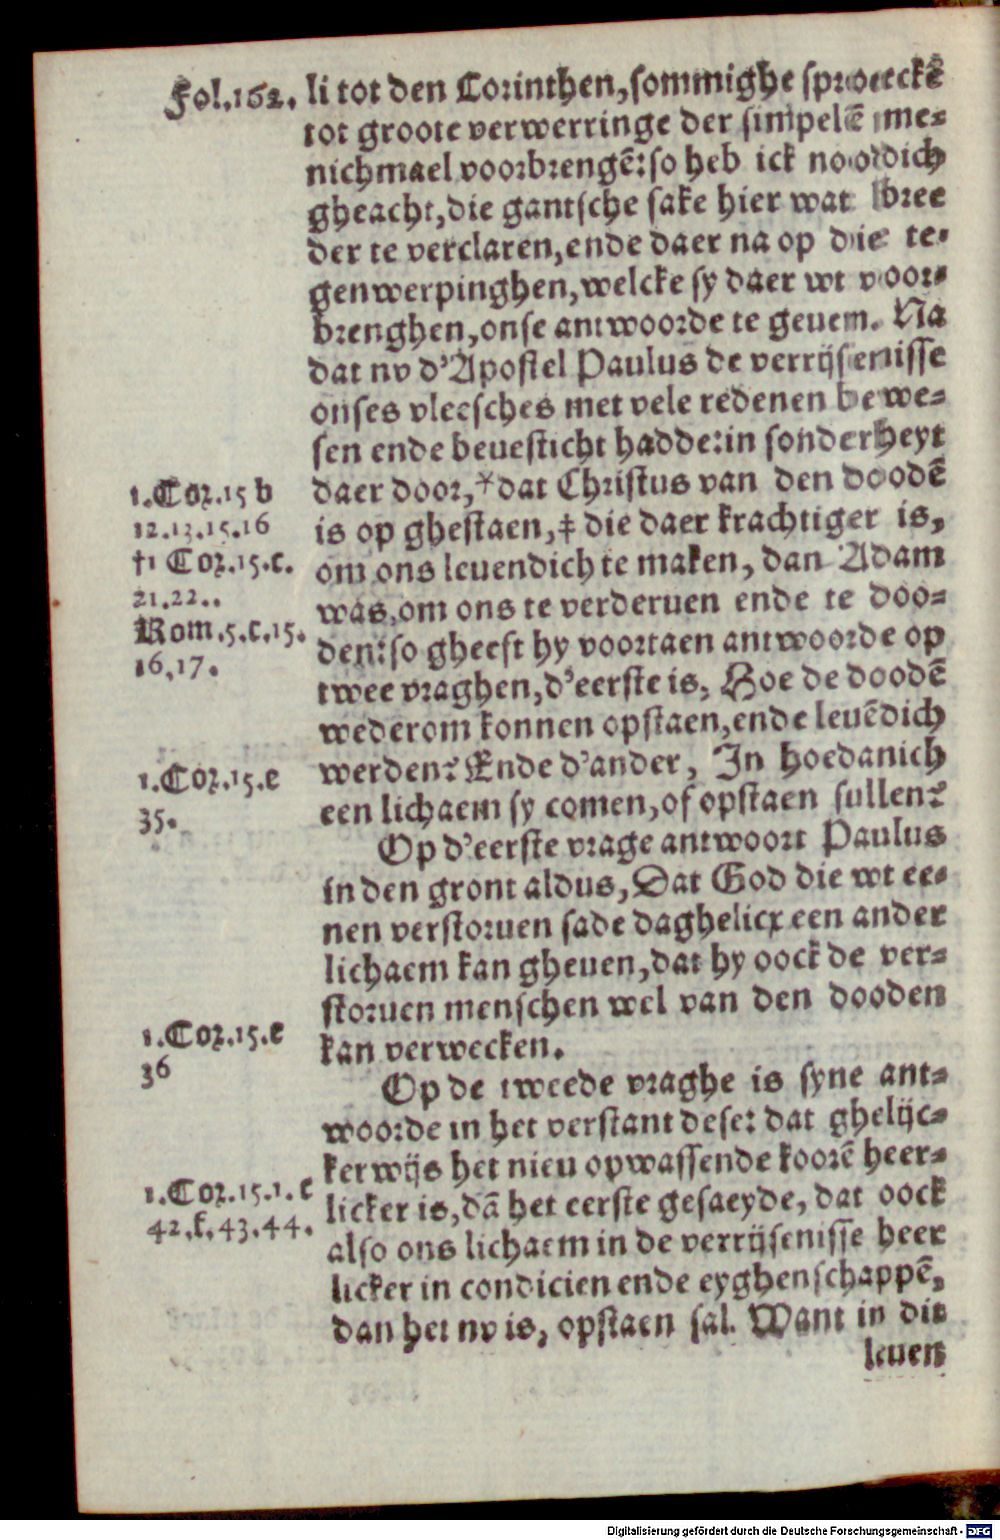 Fol.162. li tot den Corinthen, sommighe sproeckē
tot groote verwerringe der simpelē me-
nichmael voorbrengē: so heb ick noodich
gheacht, die gantsche sake hier wat bree
der te verclaren, ende daer na op die te-
genwerpinghen, welcke sy daer wt voor-
brenghen, onse antwoorde te geuem. Na
dat nv d'Apostel Paulus de verrijsenisse
onses vleesches met vele redenen bewe-
sen ende beuesticht hadde: in sonderheyt
1.Cor.15 b daer door, * dat Christus van den doodē
12.13.15.16 is op ghestaen, ‡ die daer krachtiger is,
†1 Cor.15.c. om ons leuendich te maken, dan Adam
21.22.. was, om ons te verderuen ende te doo-
Rom.5.c.15. den: so gheeft hy voortaen antwoorde op
16.17. twee vraghen, d'eerste is, Hoe de doodē
wederom konnen opstaen, ende leuēdich
1.Cor.15.e werden? Ende d'ander, In hoedanich
35. een lichaem sy comen, of opstaen sullen?
Op d'eerste vrage antwoort Paulus
in den gront aldus, Dat God die wt ee-
nen verstoruen sade daghelicx een ander
lichaem kan gheuen, dat hy oock de ver-
storuen menschen wel van den dooden
1.Cor.15.e kan verwecken.
36
Op de tweede vraghe is syne ant-
woorde in het verstant dese: dat ghelijc-
kerwijs het nieu opwassende koorē heer-
1.Cor.15.1.e licker is, dā het eerste gesaeyde, dat oock
42.f.43.44. also ons lichaem in de verrijsenisse heer
licker in condicien ende eyghenschappē,
dan het nv is, opstaen sal. Want in dit
leuen
Digitalisierung gefördert durch die Deutsche Forschungsgemeinschaft - DFG